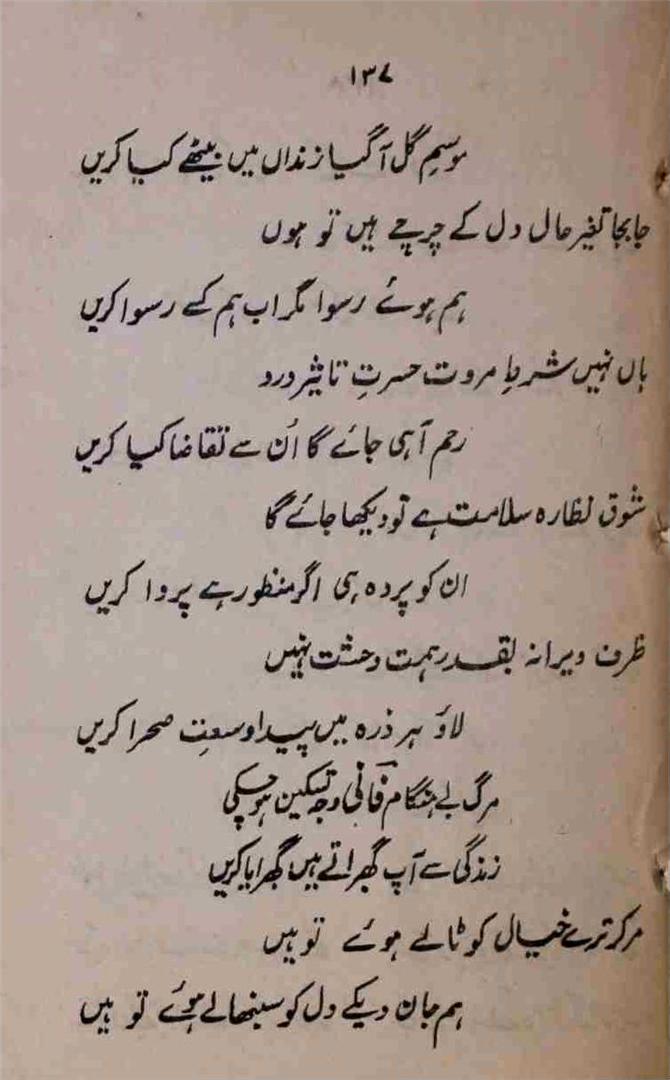 ۱۳۷
موسمِ گل آ گیا زنداں میں بیٹھے کیا کریں
جا بجا تغیر حال دل کے چرچے ہیں تو ہوں
ہم ہوئے رسوا مگر اب ہم کسے رسوا کریں
ہاں نہیں شرطِ مروت حسرتِ تاثیر درد
رحم آ ہی جائے گا اُن سے تقاضا کیا کریں
شوق نظارہ سلامت ہے تو دیکھا جائے گا
ان کو پردہ ہی اگر منظور ہے پردا کریں
ظرف ویرانہ بقدر ہمت وحشت نہیں
لاؤ ہر ذرہ میں پیدا وسعتِ صحرا کریں
مرگ بے ہنگام فانی وجہ تسکین ہو چکی
زندگی سے آپ گھبراتے ہیں گھبرایا کریں
مرکر ترے خیال کو ٹالے ہوئے تو ہیں
ہم جان دیکے دل کو سنبھالے ہوئے تو ہیں